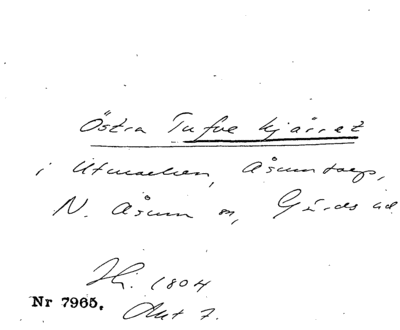 Östra Tufve kjärret
i Utmarken, Åsumtorp,
N. Åsum sn, Gärds hd
1804
Nr 7965. Akt 7.